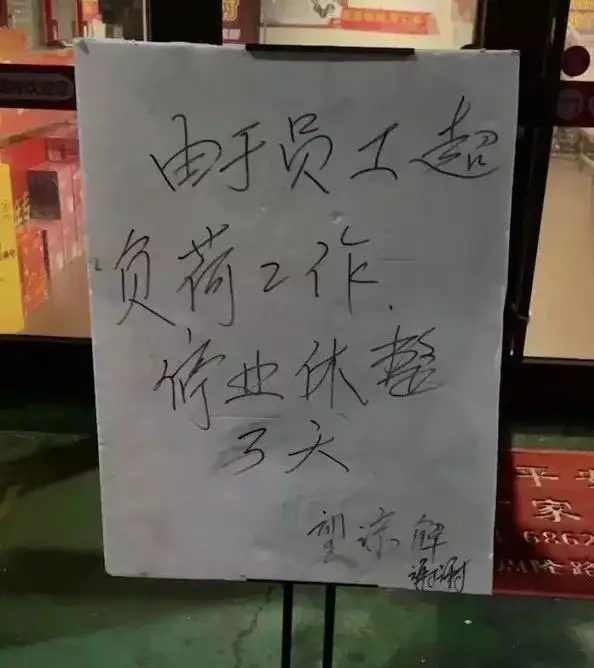 由于员工超
负荷工作.
停业休整
3天
望谅解
谢谢
平安
家
686
隆路